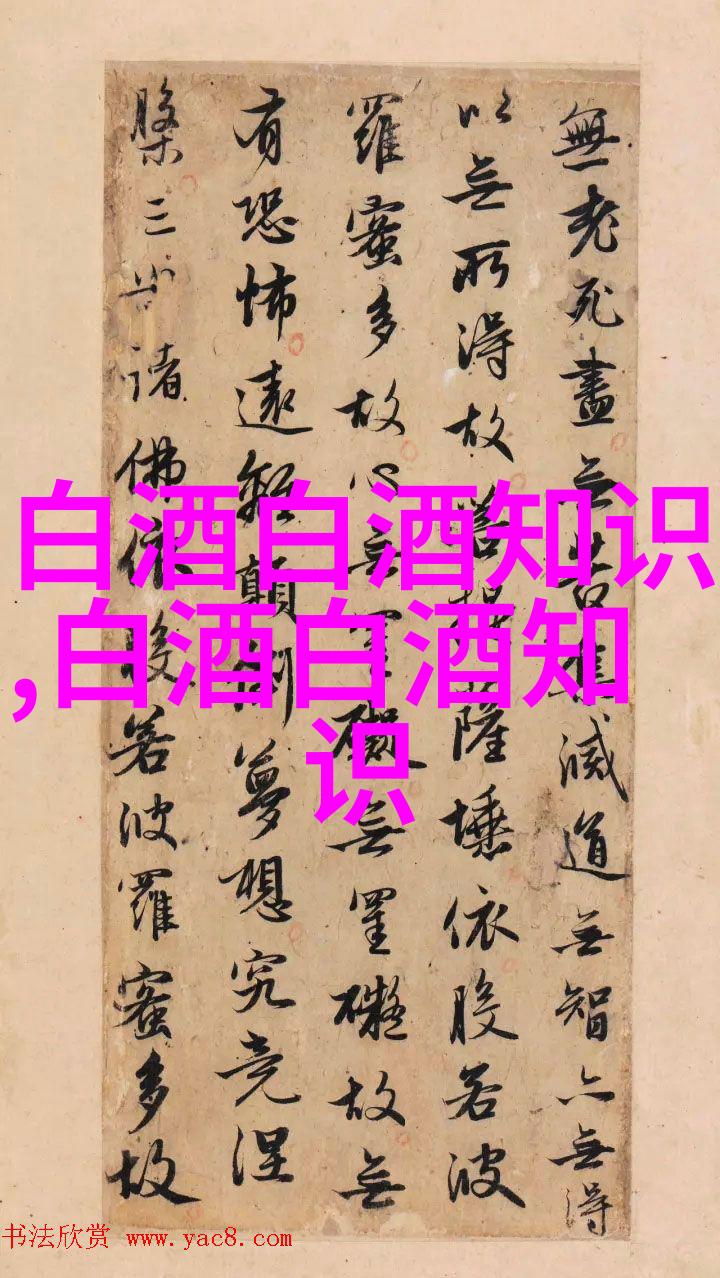 無老死盡無苦集滅道無智亦無得
以無所得故菩提薩埵依般若波
羅蜜多故心無罣礙無罣礙故無
有恐怖遠離顛倒夢想究竟涅
槃三世諸佛依般若波羅蜜多故
白酒白酒知识
,白酒白酒知
识
书法欣赏 www.yac8.com